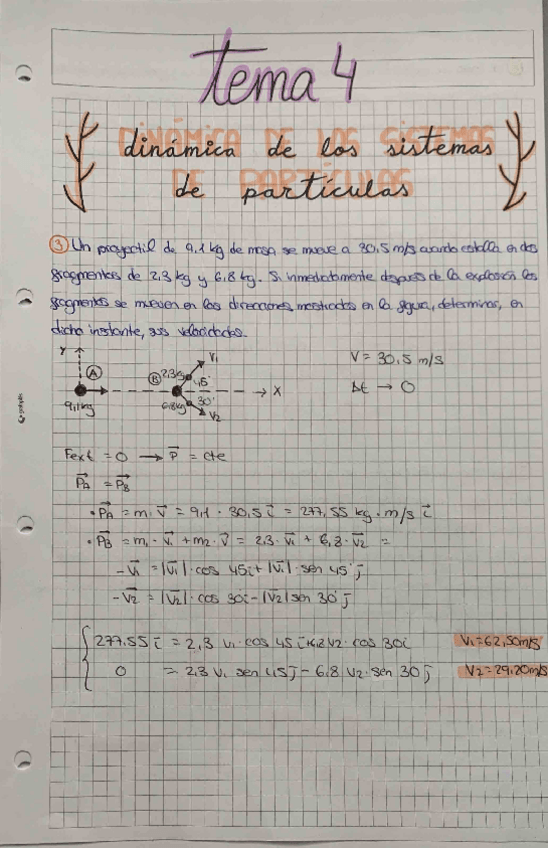 tema 4
DINÁMICA DE LOS SISTEMAS
dinámica de los sistemas
DE PARTÍCULAS
de partículas
③ Un proyectil de 9,1 kg de masa se mueve a 30,5 m/s cuando estalla en dos
fragmentos de 2,3 kg y 6,8 kg. Si inmediatamente después de la explosión los
fragmentos se mueven en las direcciones mostradas en la figura, determinar, en
dicho instante, sus velocidades.
Y
A
9,1kg
B
2,3kg
V₁
45°
6,8kg
30°
V₂
X
V = 30,5 m/s
Δt → 0
Fext = 0 → P⃗ = cte
P⃗A = P⃗B
• P⃗A = m · V⃗ = 9,1 · 30,5 i⃗ = 277,55 kg · m/s i⃗
• P⃗B = m₁ · V⃗₁ + m₂ · V⃗ = 2,3 · V⃗₁ + 6,8 · V⃗₂ =
- V⃗₁ = |V⃗₁| · cos 45 i + |V⃗₁| · sen 45° j⃗
- V⃗₂ = |V⃗₂| · cos 30 i - |V⃗₂| sen 30° j⃗
277,55 i⃗ = 2,3 V₁ · cos 45 i⃗ + 6,8 V₂ · cos 30 i V₁ = 62,50 m/s
0 = 2,3 V₁ sen 45 j⃗ - 6,8 V₂ · sen 30 j⃗ V₂ = 29,20 m/s